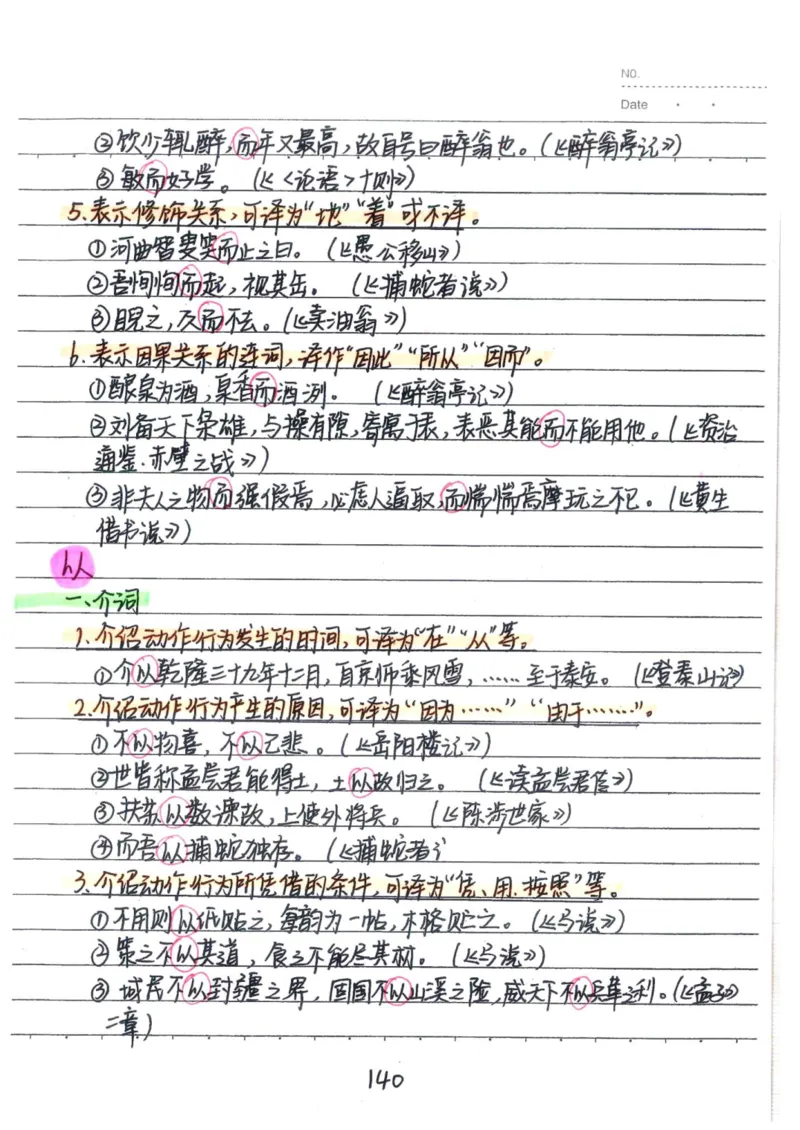 NO.
Date
②饮少辄醉,而年又最高,故自号曰醉翁也。(《醉翁亭记》)
③敏而好学。(《<论语>十则》)
5.表示修饰关系,可译为“地”“着”或不译。
①河曲智叟笑而止之曰。(《愚公移山》)
②吾恂恂而起,视其缶。(《捕蛇者说》)
③睨之,久而不去。(《卖油翁》)
6.表示因果关系的连词,译作“因此”“所以”“因而”。
①酿泉为酒,泉香而酒洌。(《醉翁亭记》)
②刘备天下枭雄,与操有隙,寄寓于表,表恶其能而不能用也。(《资治
通鉴·赤壁之战》)
③非夫人之物而强假焉,必虑人逼取,而惴惴焉摩玩之不已。(《黄生
借书说》)
以
一、介词
1.介绍动作行为发生的时间,可译为“在”“从”等。
①介以乾隆三十九年十二月,自京师乘风雪,……至于泰安。(《登泰山记》)
2.介绍动作行为产生的原因,可译为“因为……”“由于……”。
①不以物喜,不以己悲。(《岳阳楼记》)
②世皆称孟尝君能得士,士以故归之。(《读孟尝君传》)
③扶苏以数谏故,上使外将兵。(《陈涉世家》)
④而吾以捕蛇独存。(《捕蛇者
3.介绍动作行为所凭借的条件,可译为“凭、用、按照”等。
①不用则以纸贴之,每韵为一帖,木格贮之。(《马说》)
②策之不以其道,食之不能尽其材。(《马说》)
③域民不以封疆之界,固国不以山溪之险,威天下不以兵革之利。(《孟子》
二章)
140